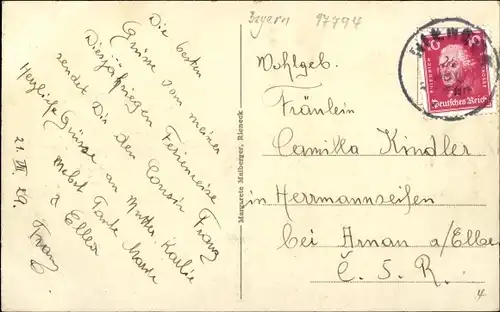 Bayern 97794
Die besten
Grüsse von meiner
Diesjährigen Ferienreise
sendet Dir den Cousin Franz
Herzliche Grüsse an Mutter Karlie
nebst Tante Marie
& Ella
Franz
21. VII 29.
Margarete Malberger, Rieneck
Deutsches Reich
Wohlgeb.
Fräulein
Camilla Kindler
in Herrmannseifen
bei Arnau a/Elbe
Č. S. R.
4